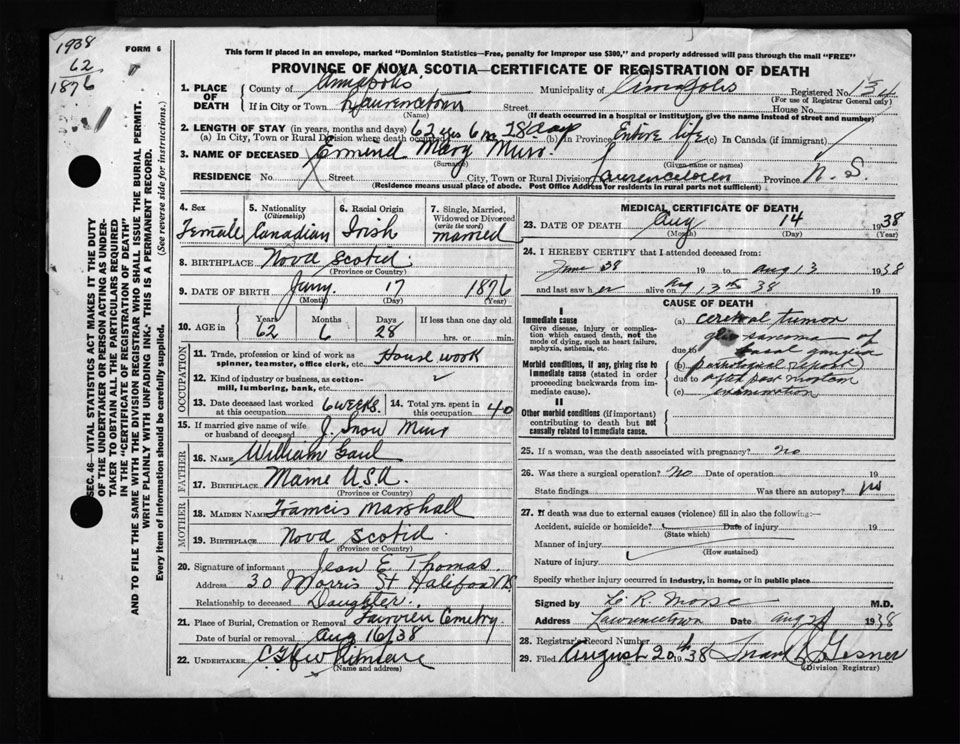 1938
62
1876
FORM 6
This form if placed in an envelope, marked "Dominion Statistics—Free, penalty for improper use $300," and properly addressed will pass through the mail "FREE"
PROVINCE OF NOVA SCOTIA—CERTIFICATE OF REGISTRATION OF DEATH
SEC. 46—VITAL STATISTICS ACT MAKES IT THE DUTY
OF THE UNDERTAKER OR PERSON ACTING AS UNDER-
TAKER TO OBTAIN ALL THE PARTICULARS REQUIRED
IN THE "CERTIFICATE OF REGISTRATION OF DEATH"
AND TO FILE THE SAME WITH THE DIVISION REGISTRAR WHO SHALL ISSUE THE BURIAL PERMIT.
WRITE PLAINLY WITH UNFADING INK. THIS IS A PERMANENT RECORD.
Every item of information should be carefully supplied. (See reverse side for instructions.)
1. PLACE OF DEATH County of Annapolis Municipality of Annapolis Registered No.
(For use of Registrar General only)
If in City or Town Lawrencetown Street House No.
(Name) (If death occurred in a hospital or institution, give its name instead of street and number)
2. LENGTH OF STAY (in years, months and days)
(a) In City, Town or Rural Division where death occurred 62 yrs 6 m 28 days (b) In Province Entire life (c) In Canada (if immigrant)
3. NAME OF DECEASED Ermind Mary Muir
(Surname) (Given name or names)
RESIDENCE No. Street City, Town or Rural Division Lawrencetown Province N. S.
(Residence means usual place of abode. Post Office Address for residents in rural parts not sufficient)
4. Sex 5. Nationality (Citizenship) 6. Racial Origin 7. Single, Married, Widowed or Divorced (write the word)
Female Canadian Irish married
8. BIRTHPLACE Nova Scotia
(Province or Country)
9. DATE OF BIRTH Janry. 17 1876
(Month) (Day) (Year)
10. AGE in Years Months Days If less than one day old
62 6 28 hrs. or min.
OCCUPATION
11. Trade, profession or kind of work as spinner, teamster, office clerk, etc. House work
12. Kind of industry or business, as cotton-mill, lumbering, bank, etc. ✓
13. Date deceased last worked at this occupation 6 WEEKS. 14. Total yrs. spent in this occupation 40
15. If married give name of wife or husband of deceased J. Snow Muir
FATHER
16. NAME William Gaul
17. BIRTHPLACE Maine U.S.A.
(Province or Country)
MOTHER
18. MAIDEN NAME Francis Marshall
19. BIRTHPLACE Nova Scotia
(Province or Country)
20. Signature of informant Jean E. Thomas.
Address 30 Morris St Halifax N.S.
Relationship to deceased Daughter.
21. Place of Burial, Cremation or Removal Fairview Cemetry.
Date of burial or removal Aug 16/38
22. UNDERTAKER
(Name and address)
MEDICAL CERTIFICATE OF DEATH
23. DATE OF DEATH Aug 14 1938
(Month) (Day) (Year)
24. I HEREBY CERTIFY that I attended deceased from:
June 38 19 to Aug 13 1938
and last saw her alive on Aug 13th 38 19
CAUSE OF DEATH
I
Immediate cause
Give disease, injury or complication which caused death, not the mode of dying, such as heart failure, asphyxia, asthenia, etc.
(a) cerebral tumor
due to sarcoma of basal ganglia
Morbid conditions, if any, giving rise to immediate cause (stated in order proceeding backwards from immediate cause).
(b) pathological report
due to after post mortem
(c) examination
II
Other morbid conditions (if important) contributing to death but not causally related to immediate cause.
25. If a woman, was the death associated with pregnancy? no
26. Was there a surgical operation? no Date of operation 19
State findings Was there an autopsy?
27. If death was due to external causes (violence) fill in also the following:—
Accident, suicide or homicide? Date of injury 19
(State which)
Manner of injury
(How sustained)
Nature of injury
Specify whether injury occurred in Industry, in home, or in public place.
Signed by L. R. Morse M.D.
Address Lawrencetown Date Aug 1938
28. Registrar's Record Number
29. Filed August 20th 1938 Gesner
(Division Registrar)